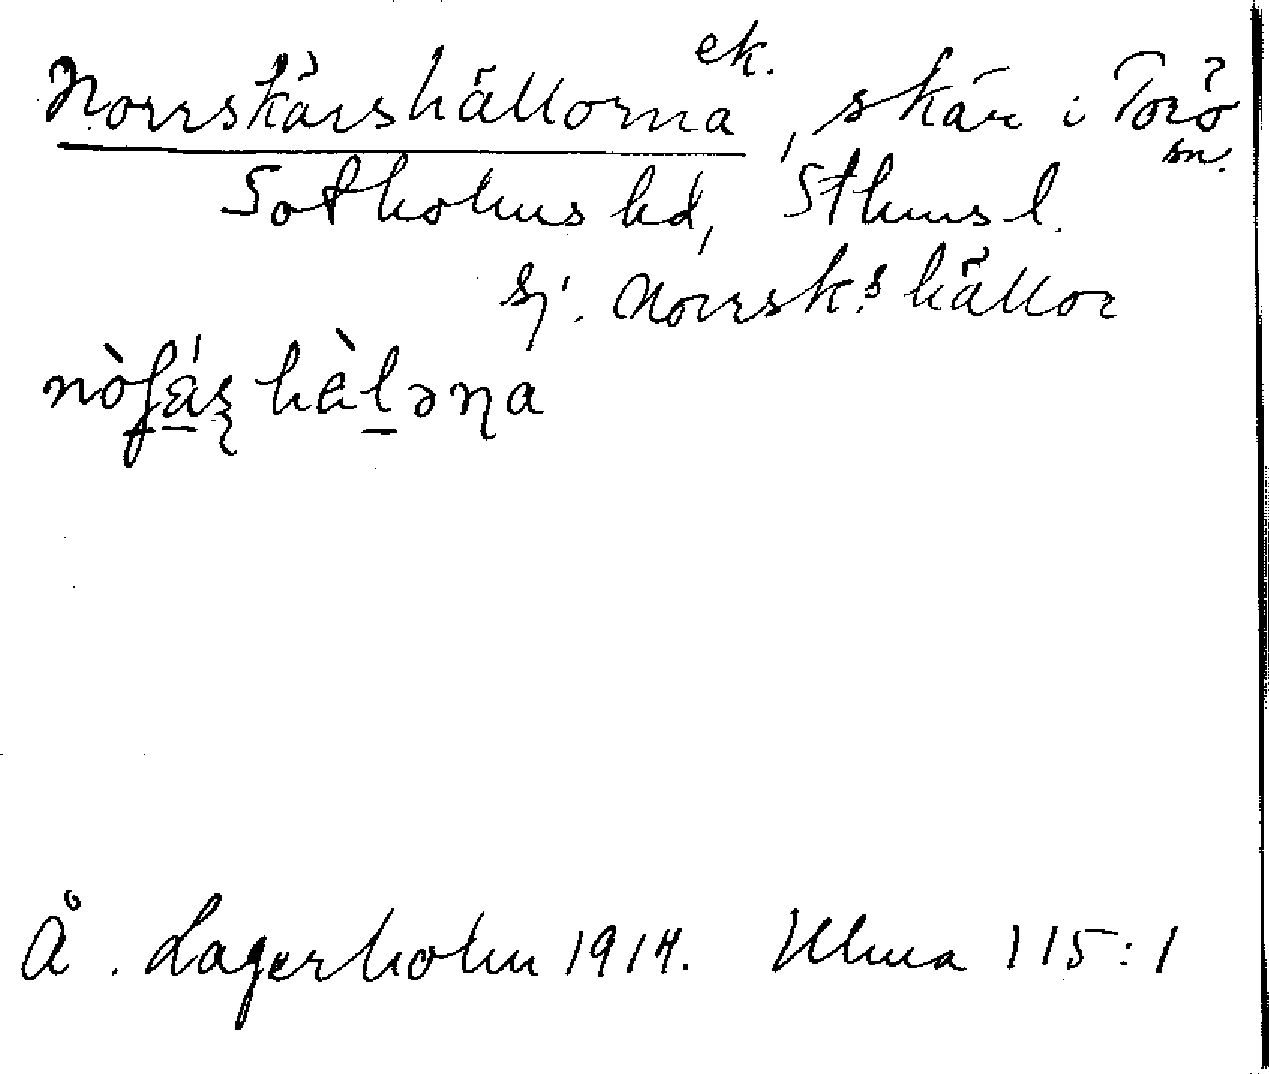 Norrskärshällorna ek., skär i Torö sn.
Sotholms hd, Sthms l.
Sj. Norrsk:s hällor
Å. Lagerholm 1914. Ulma 115:1